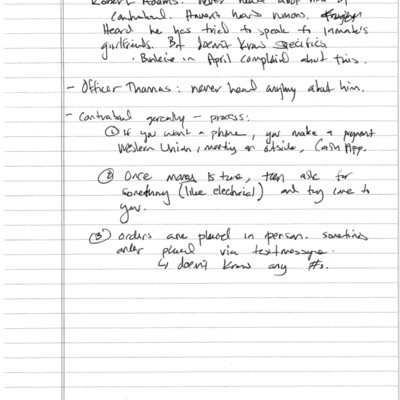 Robert Adams: never heard about him w/
contraband. Haven't heard rumors.
Heard he has tried to speak to inmate's
girlfriends. But doesn't know specifics
• Believe in April complained about this.
- Officer Thomas: never heard anything about him.
- Contraband generally - process:
① If you want a phone, you make a payment
Western Union, meeting on outside, Cash App.
② Once money is there, then ask for
something (like electrical) and they come to
you.
③ orders are placed in person. sometimes
order placed via text message.
↳ doesn't know any #s.